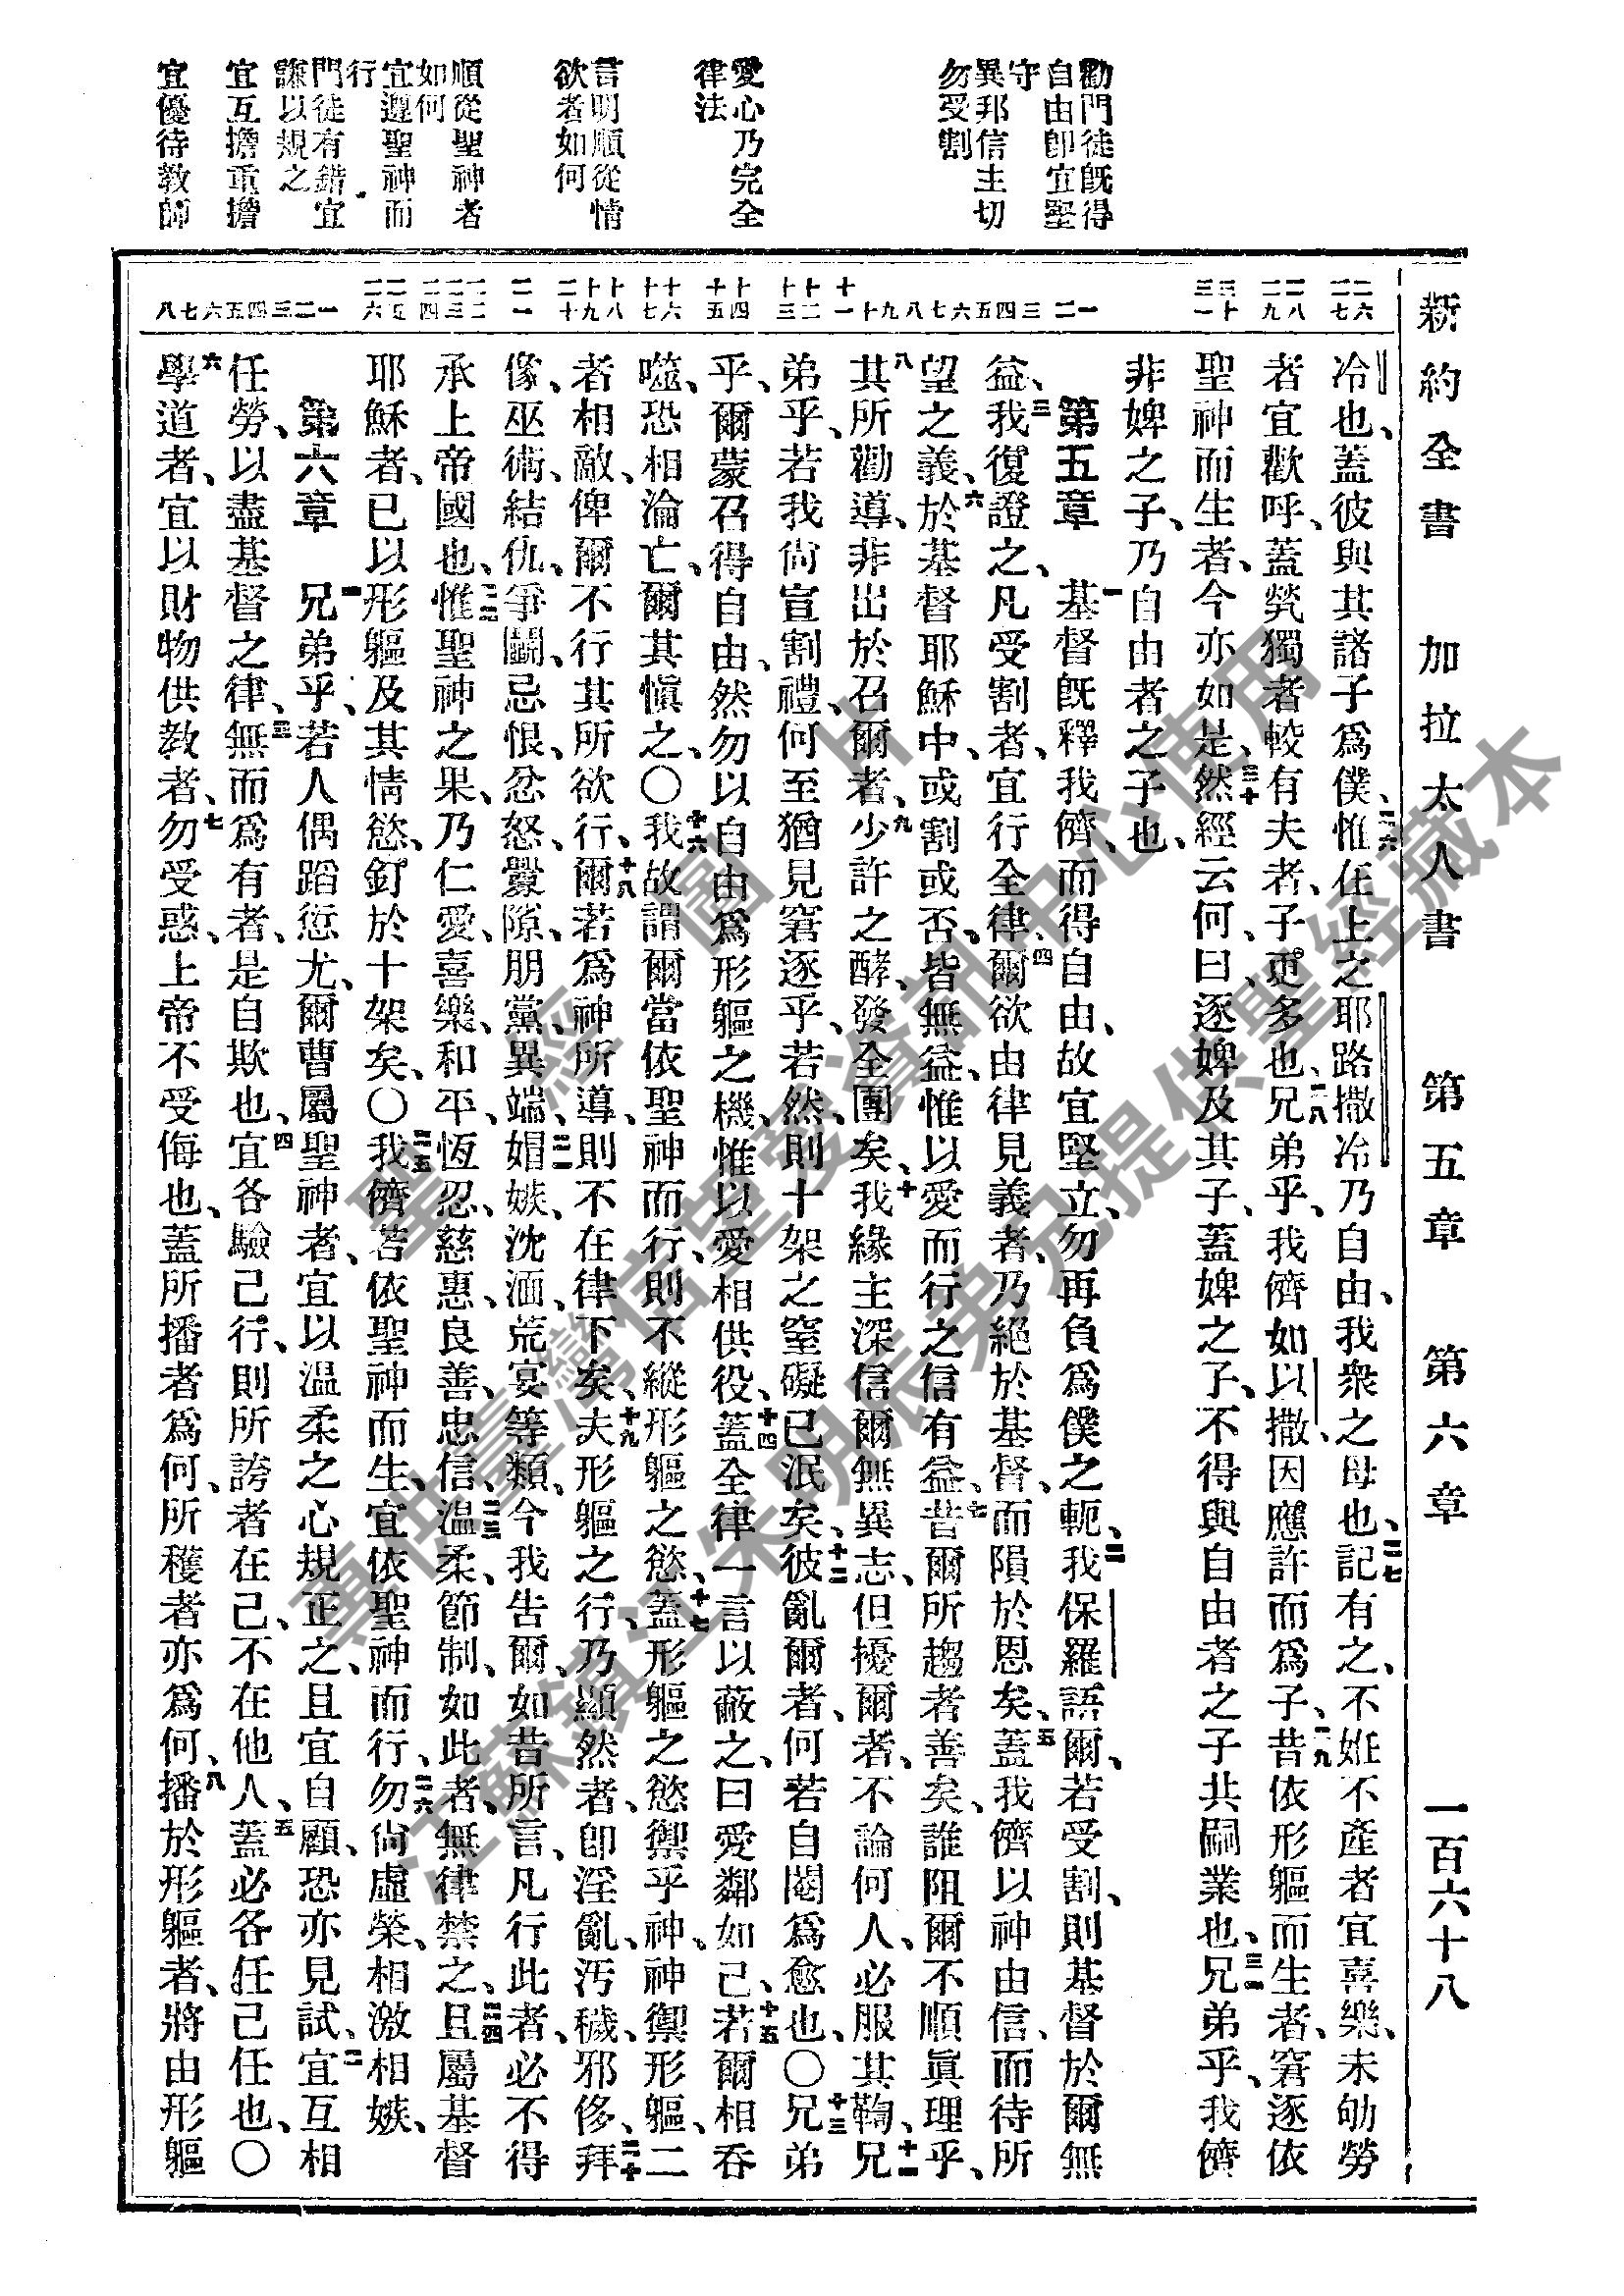 新約全書 加拉太人書 第五章 第六章 一百六十八
勸門徒既得
自由卽宜堅
守
異邦信主切
勿受割
愛心乃完全
律法
言明順從情
欲者如何
順從聖神者
如何
宜遵聖神而
行
門徒有錯宜
謙以規之
宜互擔重擔
宜優待教師
二六 二七 二八 二九 三十 三一 一 二 三 四 五 六 七 八 九 十 十一 十二 十三 十四 十五 十六 十七 十八 十九 二十 二一 二二 二三 二四 二五 二六 一 二 三 四 五 六 七 八
冷也、蓋彼與其諸子爲僕、二六惟在上之耶路撒冷乃自由、我衆之母也、二七記有之、不姙不產者宜喜樂、未劬勞
者宜歡呼、蓋煢獨者較有夫者、子更多也、二八兄弟乎、我儕如以撒、因應許而爲子、二九昔依形軀而生者、窘逐依
聖神而生者、今亦如是、三十然經云何、曰、逐婢及其子、蓋婢之子、不得與自由者之子共嗣業也、三一兄弟乎、我儕
非婢之子、乃自由者之子也、
第五章 一基督既釋我儕、而得自由、故宜堅立、勿再負爲僕之軛、二我保羅語爾、若受割、則基督於爾無
益、三我復證之、凡受割者、宜行全律、四爾欲由律見義者、乃絕於基督、而隕於恩矣、五蓋我儕以神由信、而待所
望之義、六於基督耶穌中、或割或否、皆無益、惟以愛而行之信有益、七昔爾所趨者善矣、誰阻爾不順眞理乎、
八其所勸導、非出於召爾者、九少許之酵、發全團矣、十我緣主深信爾無異志、但擾爾者、不論何人、必服其鞫、十一兄
弟乎、若我尙宣割禮、何至猶見窘逐乎、若然、則十架之窒礙已泯矣、十二彼亂爾者、何若自閹爲愈也、〇十三兄弟
乎、爾蒙召得自由、然勿以自由爲形軀之機、惟以愛相供役、十四蓋全律一言以蔽之、曰愛鄰如己、十五若爾相呑
噬、恐相淪亡、爾其愼之、〇十六我故謂爾當依聖神而行、則不縱形軀之慾、十七蓋形軀之慾禦乎神、神禦形軀、二
者相敵、俾爾不行其所欲行、十八爾若爲神所導、則不在律下矣、十九夫形軀之行、乃顯然者、卽淫亂、汚穢、邪侈、二十拜
像、巫術、結仇、爭鬭、忌恨、忿怒、釁隙、朋黨、異端、二一娼嫉、沈湎、荒宴等類、今我告爾、如昔所言、凡行此者、必不得
承上帝國也、二二惟聖神之果、乃仁愛、喜樂、和平、恆忍、慈惠、良善、忠信、二三溫柔、節制、如此者、無律禁之、二四且屬基督
耶穌者、已以形軀及其情慾、釘於十架矣、〇二五我儕若依聖神而生、宜依聖神而行、二六勿尙虛榮、相激相嫉、
第六章 一兄弟乎、若人偶蹈愆尤、爾曹屬聖神者、宜以溫柔之心規正之、且宜自顧、恐亦見試、二宜互相
任勞、以盡基督之律、三無而爲有者、是自欺也、四宜各驗己行、則所誇者在己、不在他人、五蓋必各任己任也、〇
六學道者、宜以財物供教者、七勿受惑、上帝不受侮也、蓋所播者爲何、所穫者亦爲何、八播於形軀者、將由形軀
聖經圖片
專供臺灣信望愛資訊中心使用
江蘇鎮江朱明辰弟兄提供聖經藏本